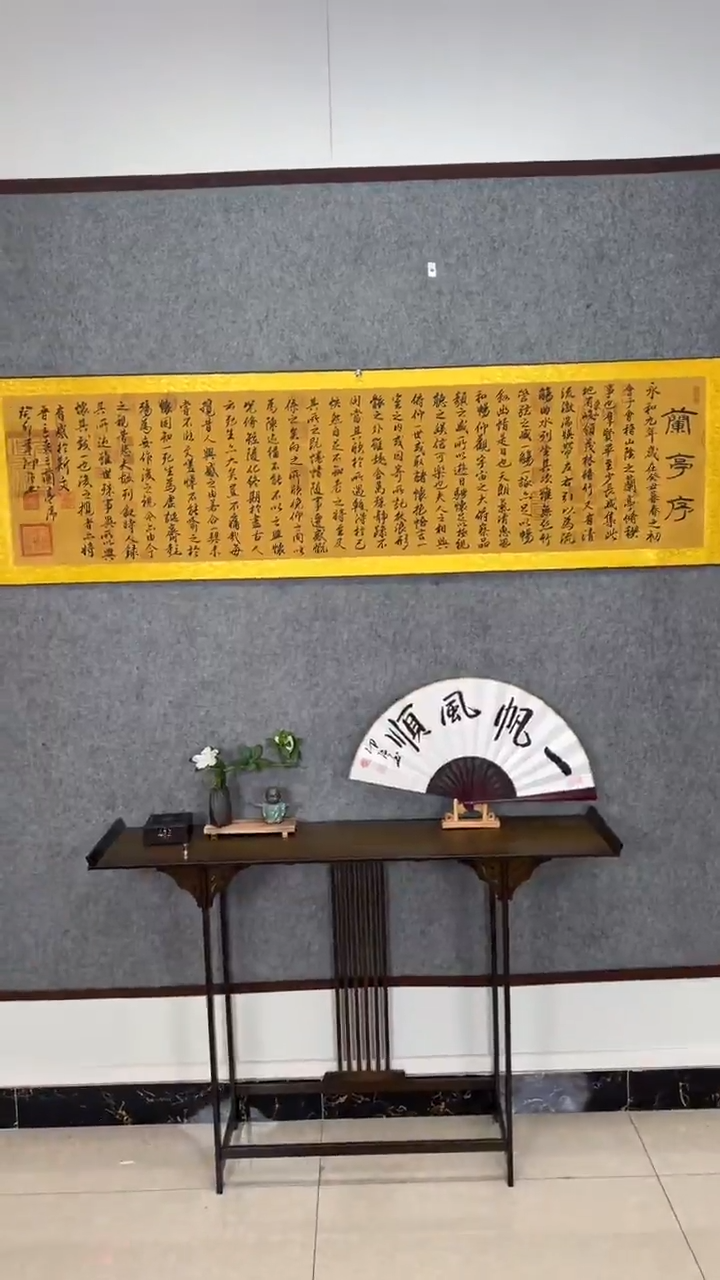 蘭亭序
永和九年歲在癸丑暮春之初
會于會稽山陰之蘭亭脩稧
事也群賢畢至少長咸集此
地有崇山峻領茂林脩竹又有清
流激湍暎帶左右引以為流
觴曲水列坐其次雖無絲竹
管弦之盛一觴一詠亦足以暢
叙幽情是日也天朗氣清惠風
和暢仰觀宇宙之大俯察品
類之盛所以遊目騁懷足以極視
聽之娛信可樂也夫人之相與
俯仰一世或取諸懷抱悟言一
室之内或因寄所託放浪形
骸之外雖趣舍萬殊静躁不
同當其欣於所遇暫得於己
怏然自足不知老之將至及
其所之既惓情隨事遷感慨
係之矣向之所欣俛仰之間以
為陳迹猶不能不以之興懷
況脩短隨化終期於盡古人
云死生亦大矣豈不痛哉每
攬昔人興感之由若合一契未
嘗不臨文嗟悼不能喻之於
懷固知一死生為虛誕齊彭
殤為妄作後之視今亦由今
之視昔悲夫故列叙時人錄
其所述雖世殊事異所以興
懷其致一也後之攬者亦將
有感於斯文
晉王羲之蘭亭序
癸卯年
一帆風順